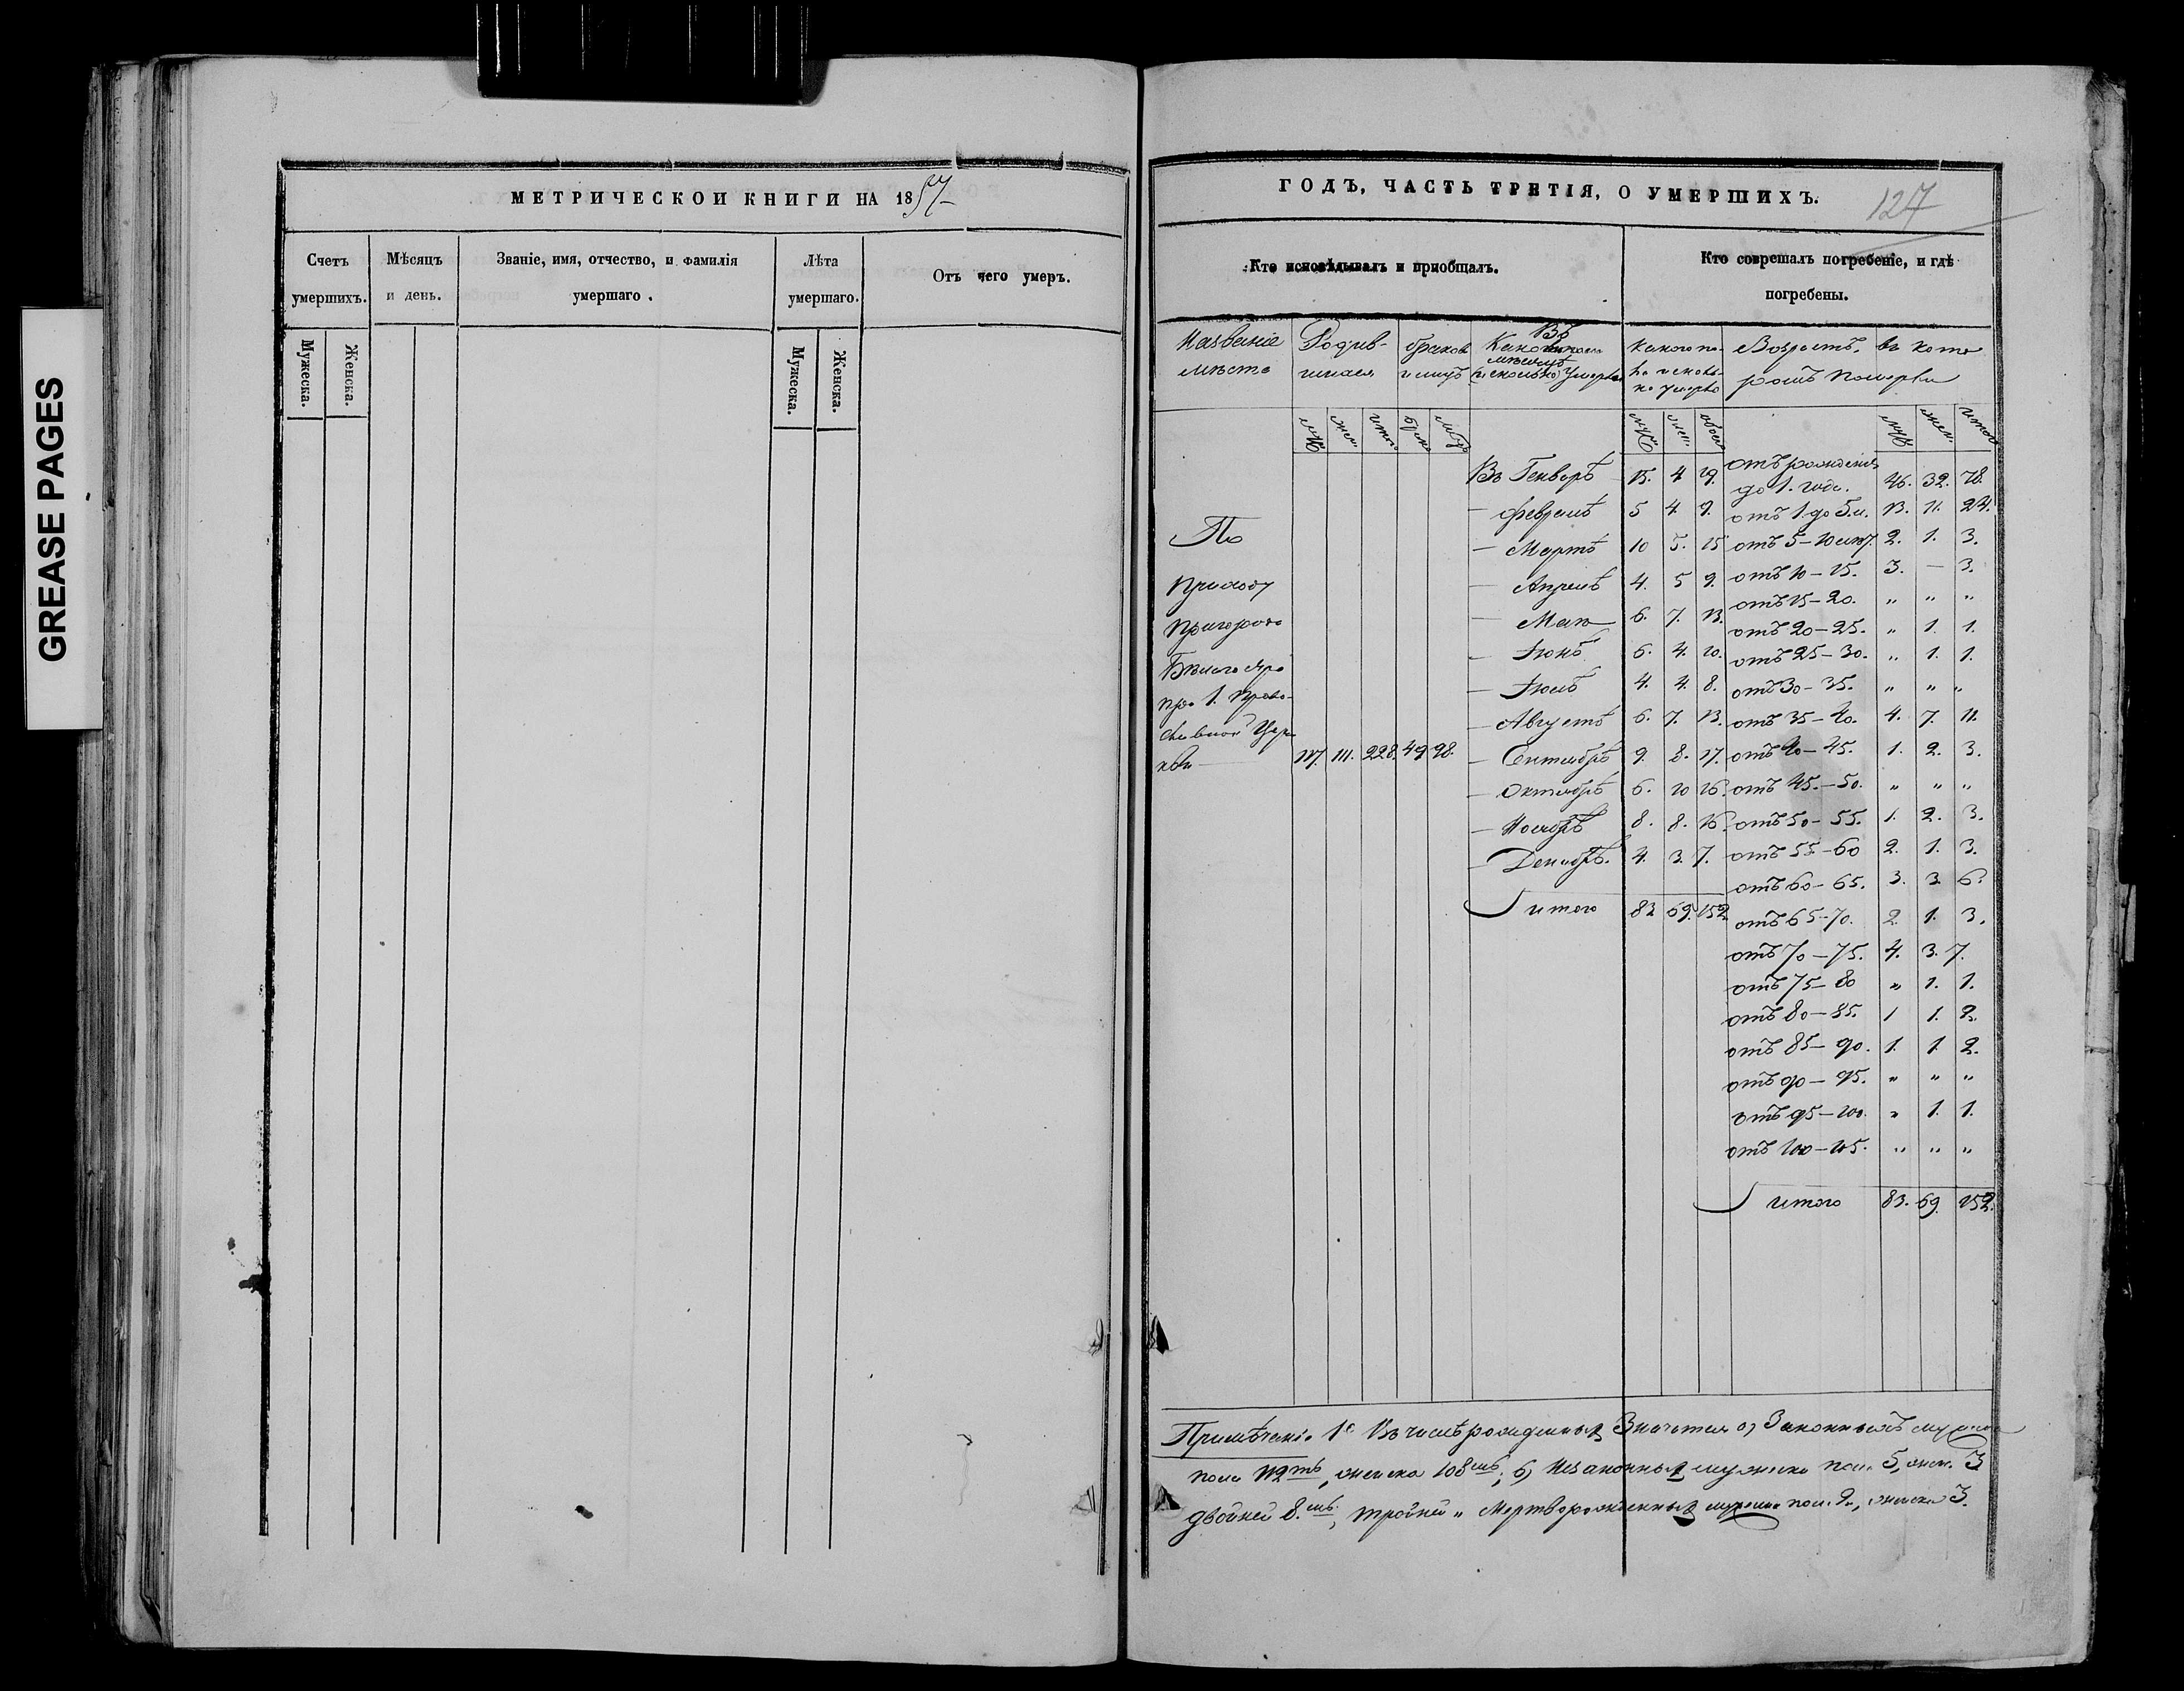 GREASE PAGES
МЕТРИЧЕСКОЙ КНИГИ НА 1857
Счетъ умершихъ.
Мѣсяцъ и день.
Званіе, имя, отчество, и фамилія умершаго.
Лѣта умершаго.
Отъ чего умеръ.
Мужеска.
Женска.
Мужеска.
Женска.
ГОДЪ, ЧАСТЬ ТРЕТІЯ, О УМЕРШИХЪ.
127
Кто исповѣдывалъ и пріобщалъ.
Кто соврешалъ погребеніе, и гдѣ погребены.
Названіе мѣста
Родив-шихся
браков и лицъ
Въ мѣсяцѣ и сколько умерло
какого по-ла и сколь-ко умерло
Возрастъ, въ кото
ромъ померли
муж. жен. итого
муж. жен. обоего
муж. жен. итого
Въ Генварѣ 15. 4 19. отъ рожденія до 1. года. 46. 32. 78.
— Февралѣ 5 4 9. отъ 1 до 5. 13. 11. 24.
— Мартѣ 10 5. 15 отъ 5–10 2. 1. 3.
— Апрелѣ 4. 5 9. отъ 10–15. 3. — 3.
отъ 15–20. „ „ „
— Маѣ 6. 7. 13. отъ 20–25. „ 1. 1.
— Іюнѣ 6. 4. 10. отъ 25–30. „ 1. 1.
— Іюлѣ 4. 4. 8. отъ 30–35. „ „ „
— Августѣ 6. 7. 13. отъ 35–40. 4. 7. 11.
— Сентябрѣ 9. 8. 17. отъ 40–45. 1. 2. 3.
— Октябрѣ 6. 10 16. отъ 45.–50. „ „ „
— Ноябрѣ 8. 8. 16. отъ 50–55. 1. 2. 3.
— Декабрѣ. 4. 3. 7. отъ 55–60 2. 1. 3.
отъ 60–65. 3. 3. 6.
итого 83 69. 152. отъ 65–70. 2. 1. 3.
отъ 70–75. 4. 3. 7.
отъ 75–80 „ 1. 1.
отъ 80–85. 1 1. 2.
отъ 85–90. 1. 1. 2.
отъ 90–95. „ „ „
отъ 95–100. „ 1. 1.
отъ 100–105. „ „ „
итого 83. 69. 152.
По
приходу
пригорода
Бѣлаго Яра
Церк
кви
117. 111. 228. 49 98.
Примѣчаніе 1е Въ числѣ рожденныхъ значится а) законныхъ мужска
пола 112ть, женска 108мь; б) незаконныхъ мужска пол. 5, женс. 3
двойней 8.мь, тройни „ мертворожденныхъ мужска пол. 9., женска 3.